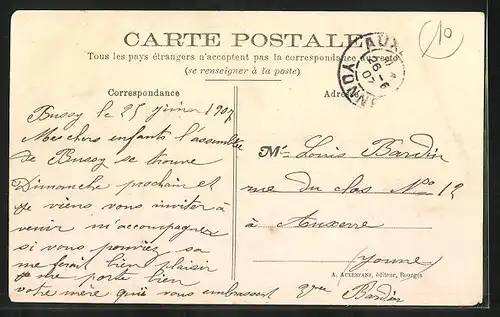 10
CARTE POSTALE
Tous les pays étrangers n'acceptent pas la correspondance au recto
(se renseigner à la poste)
AUX
26-6
07
YONNE
Correspondance
Adresse
Bussy le 25 juin 1907
Mes chers enfants l'assemblée
de Bussy se trouve
Dimanche prochain et
je viens vous inviter à
venir m'accompagner
si vous pouviez sa
me ferait bien plaisir
je me porte bien
votre mère qui vous embrassent
Vve Bardin
Mr Louis Bardin
rue du clos No 12
à Auxerre
Yonne
A. AUXENFANS, éditeur, Bourges